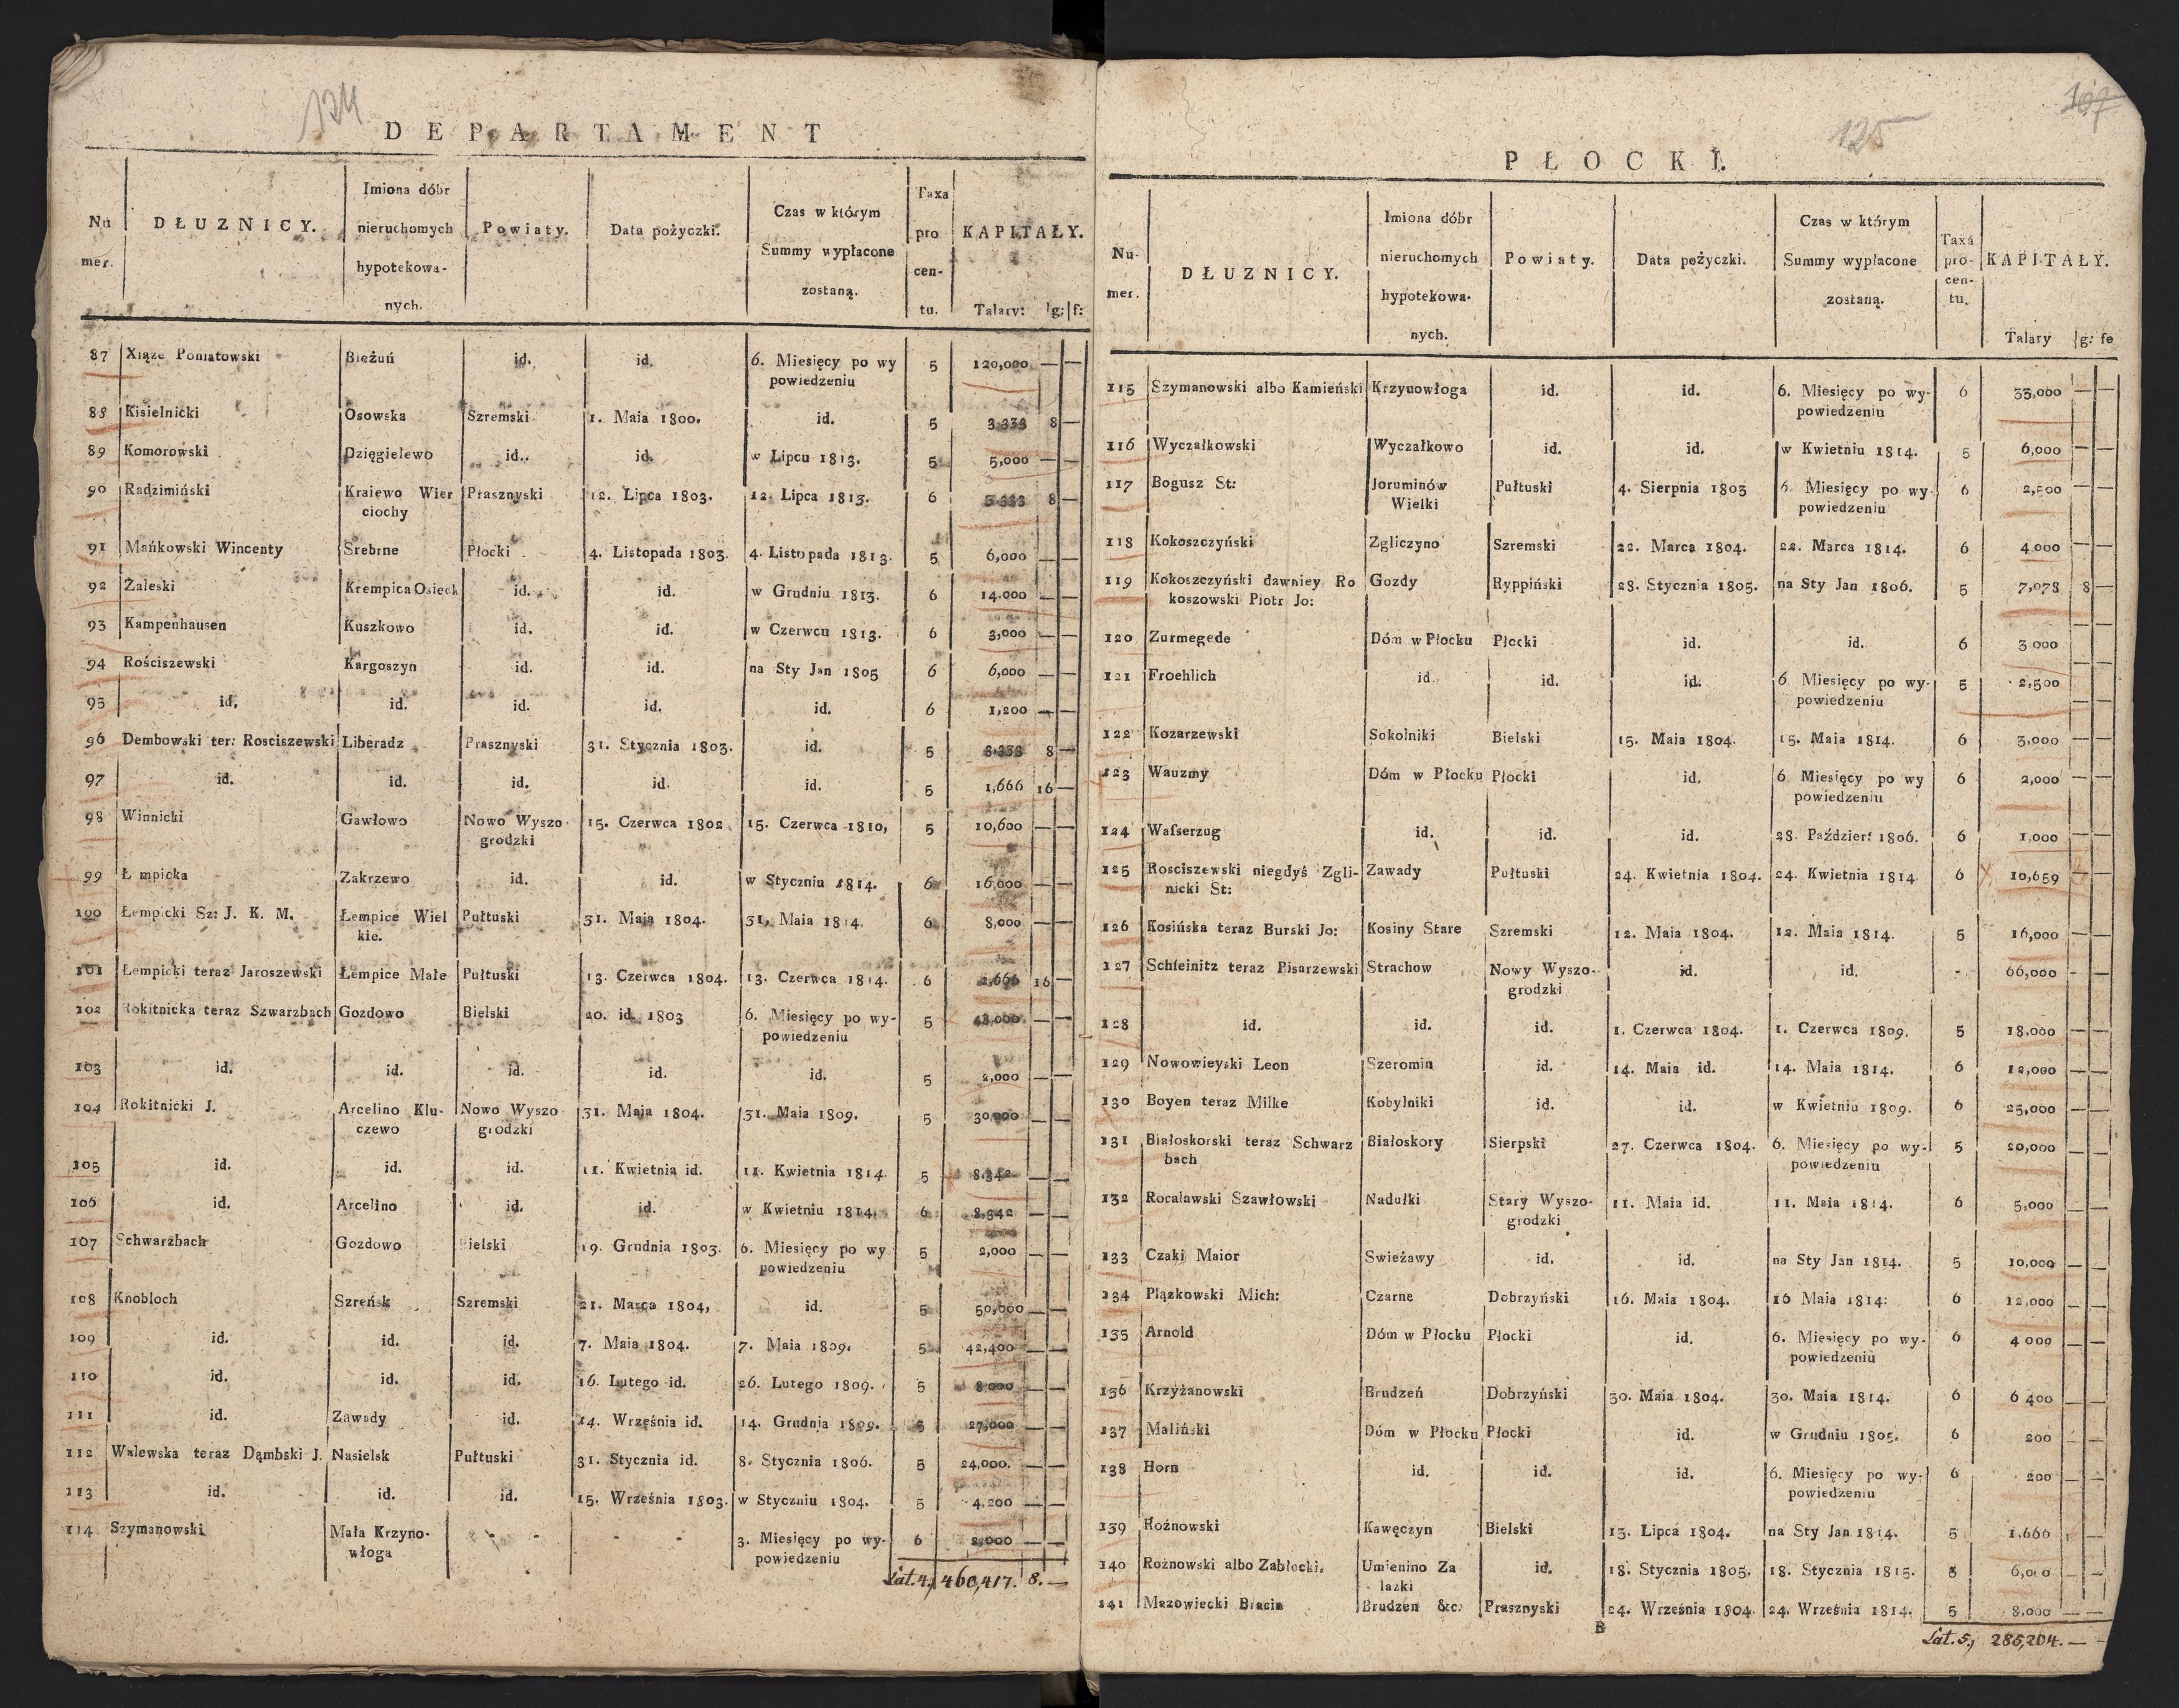 124
DEPARTAMENT
Nu mer. | DŁUZNICY. | Imiona dóbr nieruchomych hypotekowa- nych. | Powiaty. | Data pożyczki. | Czas w którym Summy wypłacone zostaną. | Taxa pro cen- tu. | KAPITAŁY. Talary: g: f:
87 Xiąże Poniatowski Bieżuń id. id. 6. Miesięcy po wy 5 120,000 — —
powiedzeniu
88 Kisielnicki Osowska Szremski 1. Maia 1800. id. 5 3,333 8 —
89 Komorowski Dzięgielewo id. id. w Lipcu 1813. 5 5,000 — —
90 Radzimiński Kraiewo Wier Prasznyski 12. Lipca 1803. 12. Lipca 1813. 6 5,333 8 —
ciochy
91 Mańkowski Wincenty Srebrne Płocki 4. Listopada 1803. 4. Listopada 1813. 5 6,000 — —
92 Żaleski Krempica Osieck id. id. w Grudniu 1813. 6 14.000 — —
93 Kampenhausen Kuszkowo id. id. w Czerwcu 1813. 6 3,000 — —
94 Rościszewski Kargoszyn id. id. na Sty Jan 1805 6 6,000 — —
95 id. id. id. id. id. 6 1,200 — —
96 Dembowski ter: Rosciszewski Liberadz Prasznyski 31. Stycznia 1803. id. 5 8,333 8 —
97 id. id. id. id. id. 5 1,666 16 —
98 Winnicki Gawłowo Nowo Wyszo 15. Czerwca 1802 15. Czerwca 1810, 5 10,600 — —
grodzki
99 Ł mpicka Zakrzewo id. id. w Styczniu 1814. 6 16,000 — —
100 Łempicki Sz: J. K. M. Łempice Wiel Pułtuski 31. Maia 1804. 31. Maia 1814. 6 8,000 — —
kie.
101 Łempicki teraz Jaroszewski Łempice Małe Pułtuski 13. Czerwca 1804. 13. Czerwca 1814. 6 2,666 16 —
102 Rokitnicka teraz Szwarzbach Gozdowo Bielski 20. id. 1803 6. Miesięcy po wy- 5 48,000 — —
powiedzeniu
103 id. id. id. id. id. 5 2,000 — —
104 Rokitnicki J. Arcelino Klu- Nowo Wyszo 31. Maia 1804. 31. Maia 1809. 5 30,000 — —
czewo grodzki
105 id. id. id. 11. Kwietnia id. 11. Kwietnia 1814 5 8,342 — —
106 id. Arcelino id. id. w Kwietniu 1814. 6 8,342 — —
107 Schwarzbach Gozdowo Bielski 19. Grudnia 1803. 6. Miesięcy po wy 5 2,000 — —
powiedzeniu
108 Knobloch Szreńsk Szremski 21. Marca 1804, id. 5 50,000 — —
109 id. id. id. 7. Maia 1804. 7. Maia 1809. 5 42,400 — —
110 id. id. id. 16. Lutego id. 26. Lutego 1809. 5 8,000 — —
111 id. Zawady id. 14. Września id. 14. Grudnia 1809. 5 27,000 — —
112 Walewska teraz Dąmbski J. Nasielsk Pułtuski 31. Stycznia id. 8. Stycznia 1806. 5 24,000. — —
113 id. id. id. 15. Września 1803. w Styczniu 1804. 5 4,200 — —
114 Szymanowski Mała Krzyno- - - - 3. Miesięcy po wy- 6 2,000 — —
włoga powiedzeniu
Lat. 4, 460,417. 8. —
107
125
PŁOCKI.
Nu- mer. | DŁUZNICY. | Imiona dóbr nieruchomych hypotekowa- nych. | Powiaty. | Data pożyczki. | Czas w którym Summy wypłacone zostaną. | Taxa pro- cen- tu. | KAPITAŁY. Talary g: fe
115 Szymanowski albo Kamieński Krzynowłoga id. id. 6. Miesięcy po wy- 6 35,000 — —
powiedzeniu
116 Wyczałkowski Wyczałkowo id. id. w Kwietniu 1814. 5 6,000 — —
117 Bogusz St: Joruminów Pułtuski 4. Sierpnia 1803 6. Miesięcy po wy- 6 2,500 — —
Wielki powiedzeniu
118 Kokoszczyński Zgliczyno Szremski 22. Marca 1804. 22. Marca 1814. 6 4 000 — —
119 Kokoszczyński dawniey Ro Gozdy Ryppiński 28. Stycznia 1805. na Sty Jan 1806. 5 7,078 8 —
koszowski Piotr Jo:
120 Zurmegede Dóm w Płocku Płocki id. id. 6 3 000 — —
121 Froehlich id. id. id. 6. Miesięcy po wy- 5 2,500 — —
powiedzeniu
122 Kozarzewski Sokolniki Bielski 15. Maia 1804. 15. Maia 1814. 6 3,000 — —
123 Wauzmy Dóm w Płocku Płocki id. 6. Miesięcy po wy 6 2,000 — —
powiedzeniu
124 Waſserzug id. id. id. 28. Paździer: 1806. 6 1,000 — —
125 Rosciszewski niegdyś Zgli- Zawady Pułtuski 24. Kwietnia 1804. 24. Kwietnia 1814 6 10,659 — —
nicki St:
126 Kosińska teraz Burski Jo: Kosiny Stare Szremski 12. Maia 1804. 12. Maia 1814. 5 16,000 — —
127 Schleinitz teraz Pisarzewski Strachow Nowy Wyszo- id. id. - 66,000 — —
grodzki
128 id. id. id. 1. Czerwca 1804. 1. Czerwca 1809. 5 18,000 — —
129 Nowowieyski Leon Szeromin id. 14. Maia id. 14. Maia 1814. 6 12,000 — —
130 Boyen teraz Milke Kobylniki id. id. w Kwietniu 1809. 6 25,000 — —
131 Białoskorski teraz Schwarz Białoskory Sierpski 27. Czerwca 1804. 6. Miesięcy po wy- 5 20,000 — —
bach powiedzeniu
132 Rocalawski Szawłowski Nadułki Stary Wyszo- 11. Maia id. 11. Maia 1814. 6 5,000 — —
grodzki
133 Czaki Maior Swieżawy id. id. na Sty Jan 1814. 5 10,000 — —
134 Plązkowski Mich: Czarne Dobrzyński 16. Maia 1804. 16 Maia 1814: 6 12,000 — —
135 Arnold Dóm w Płocku Płocki id. 6. Miesięcy po wy- 6 4 000 — —
powiedzeniu
136 Krzyżanowski Brudzeń Dobrzyński 30. Maia 1804. 30. Maia 1814. 6 6 400 — —
137 Maliński Dóm w Płocku Płocki id. w Grudniu 1805. 6 200 — —
138 Horn id. id. id. 6. Miesięcy po wy- 6 200 — —
powiedzeniu
139 Rożnowski Kawęczyn Bielski 13. Lipca 1804. na Sty Jan 1814. 5 1,666 — —
140 Rożnowski albo Zabłocki. Umienino Za id. 18. Stycznia 1805. 18. Stycznia 1815. 5 6,000 — —
lazki
141 Mazowiecki Bracia Brudzen &c: Prasznyski 24. Września 1804. 24. Września 1814. 5 8,000 — —
B
Lat. 5, 285,204. — -